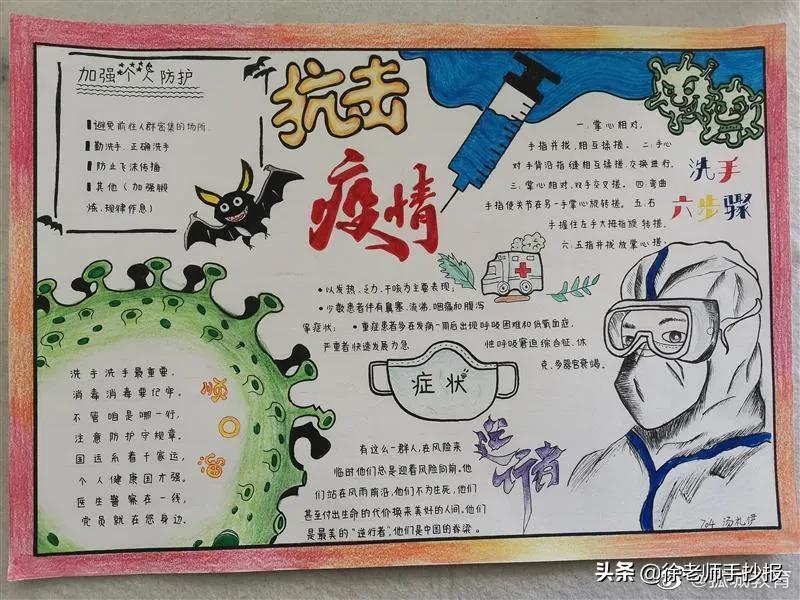 加强个人防护
避免前往人群密集的场所.
勤洗手.正确洗手
防止飞沫传播
其他(加强锻
炼、规律作息)
抗击
疫情
一:掌心相对,
手指并拢,相互揉搓。二:手心
对手背沿指缝相互揉搓,交换进行.
三:掌心相对,双手交叉搓。四:弯曲
手指使关节在另一手掌心旋转搓。五:右
手握住左手大拇指旋转搓.
六:五指并拢放掌心搓.
洗手
六步骤
•以发热、乏力、干咳为主要表现;
•少数患者伴有鼻塞、流涕、咽痛和腹泻
等症状; •重症患者多在发病一周后出现呼吸困难和低氧血症,
严重者快速发展为急
性呼吸窘迫综合征、休
克、多器官衰竭。
症状
洗手洗手最重要,
消毒消毒要记牢。
不管咱是哪一行,
注意防护守规章。
国运系着千家运,
个人健康国才强。
医生警察在一线,
党员就在您身边.
顺口溜
逆行者
有这么一群人,在风险来
临时他们总是迎着风险向前。他
们站在风雨前沿,他们不为生死,他们
甚至付出生命的代价换来美好的人间。他们
是最美的"逆行者",他们是中国的脊梁。
704 汤礼伊
头条 @徐老师手抄报
@孤城教育